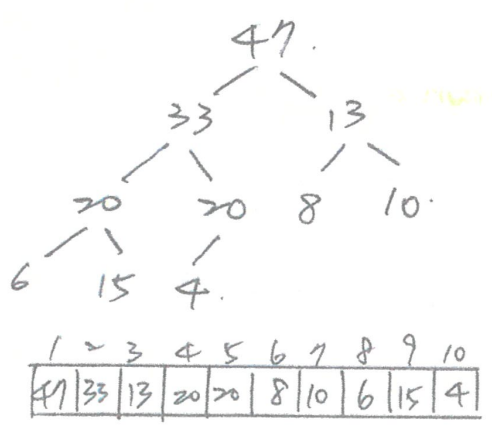 47.
33 13
20 20 8 10.
6 15 4.
1 2 3 4 5 6 7 8 9 10
47 33 13 20 20 8 10 6 15 4